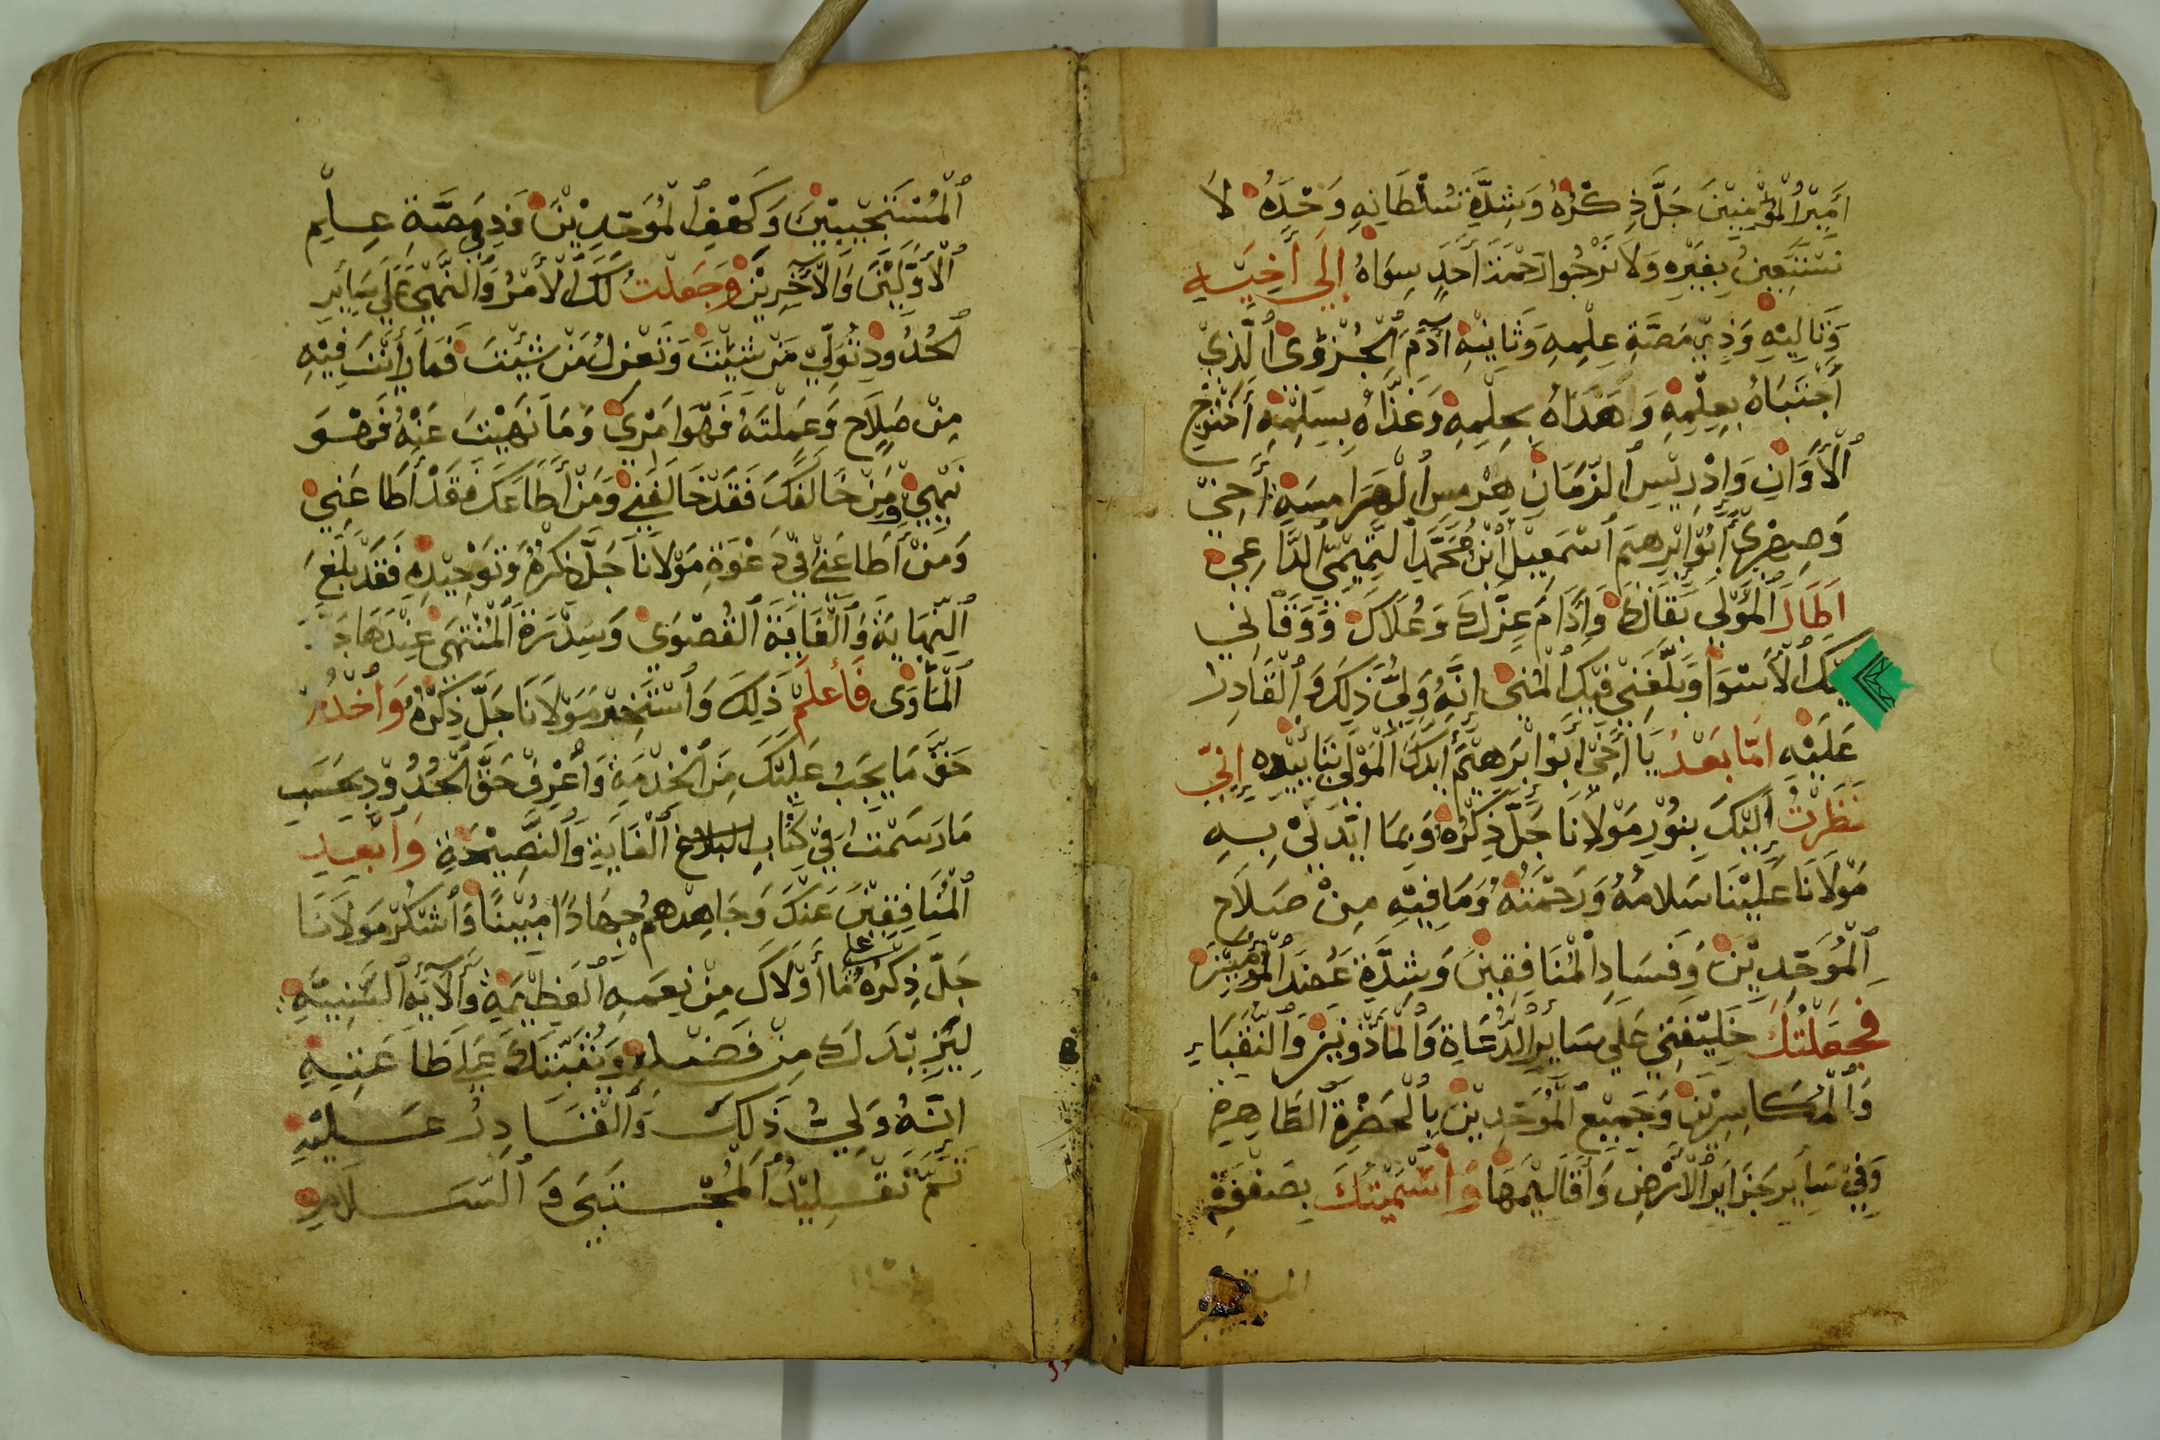 أَمِيْرِ الْمُؤْمِنِيْنَ جَلَّ ذِكْرُهُ وَشِدَّةِ سُلْطَانِهِ وَحْدَهُ لَا
نَسْتَعِيْنُ بِغَيْرِهِ وَلَا نَرْجُوا رَحْمَةَ أَحَدٍ سِوَاهُ إِلَى أَخِيْهِ
وَتَالِيْهِ وَذِيْ مَصَّةِ عِلْمِهِ وَثَانِيْهِ آدَمَ الْجُزْوِى الَّذِيْ
أَجْتَبَاهُ بِعِلْمِهِ وَهَدَاهُ بِحِلْمِهِ وَغَذَّاهُ بِسِلْمِهِ أَخْنُوْخِ
الْأَوَانِ وَإِدْرِيْسِ الزَّمَانِ هِرْمِسِ الْهَرَامِسَةِ أَخِيْ
وَصِهْرِيْ أَبُوْ إِبْرٰهِيمَ أَسْمٰعِيْلَ أَبْنِ مُحَمَّدٍ التَّمِيْمِيِّ الدَّاعِي
أَطَالَ الْمَوْلَى بَقَاكَ وَأَدَامَ عِزَّكَ وَعُلَاكَ وَوَقَانِي
فِيْكَ الْأَسْوَا وَبَلَّغَنِيْ فِيْكَ الْمُنَى إِنَّهُ وَلِيُّ ذٰلِكَ وَالْقَادِرُ
عَلَيْهِ أَمَّا بَعْدُ يَا أَخِيْ أَبُوْ إِبْرَهِيْمَ أَيَّدَكَ الْمَوْلَى بِتَأْيِيْدِهِ إِنِّيْ
نَظَرْتُ إِلَيْكَ بِنُوْرِ مَوْلَانَا جَلَّ ذِكْرُهُ وَبِمَا أَيَّدَنِيْ بِهِ
مَوْلَانَا عَلَيْنَا سَلَامُهُ وَرَحْمَتُهُ وَمَا فِيْهِ مِنْ صَلَاحِ
الْمُوَحِّدِيْنَ وَفَسَادِ الْمُنَافِقِيْنَ وَشِدَّةِ عَضُدِ الْمُؤْمِنِيْنَ
فَجَعَلْتُكَ خَلِيْفَتِيْ عَلَى سَايِرِ الدُّعَاةِ وَالْمَأْذُوْنِيْنَ وَالنُّقَبَاءِ
وَالْمُكَاسِرِيْنَ وَجَمِيْعِ الْمُوَحِّدِيْنَ بِالْحَضْرَةِ الطَّاهِرَةِ
وَفِيْ سَايِرِ جَزَايِرِ الْأَرْضِ وَأَقَالِيْمِهَا وَأَسْمَيْتُكَ بِصَفْوَةِ
الْمُسْتَجِيْبِيْنَ وَكَهْفِ الْمُوَحِّدِيْنَ وَذِيْ مَصَّةِ عِلْمِ
الْأَوَّلِيْنَ وَالْآخِرِيْنَ وَجَعَلْتُ لَكَ الْأَمْرَ وَالنَّهْيَ عَلَى سَايِرِ
الْحُدُودِ تُوَلِّيْ مَنْ شِئْتَ وَتَعْزِلُ مَنْ شِئْتَ فَمَا رَأَيْتَ فِيْهِ
مِنْ صَلَاحٍ وَعَمِلْتَهُ فَهُوَ أَمْرِيْ وَمَا نَهَيْتَ عَنْهُ فَهُوَ
نَهْيِيْ وَمَنْ خَالَفَكَ فَقَدْ خَالَفَنِيْ وَمَنْ أَطَاعَكَ فَقَدْ أَطَاعَنِيْ
وَمَنْ أَطَاعَنِيْ فِيْ دَعْوَةِ مَوْلَانَا جَلَّ ذِكْرُهُ وَتَوْحِيْدِهِ فَقَدْ بَلَغَ
النِّهَايَةَ وَالْغَايَةَ الْقُصْوَى وَسِدْرَةَ الْمُنْتَهَى عِنْدَهَا
الْمَأْوَى فَأَعْلَمْ ذٰلِكَ وَأَسْتَخِيْرْ مَوْلَانَا جَلَّ ذِكْرُهُ وَأَخْدُمْ
حَقَّ مَا يَجِبُ عَلَيْكَ مِنَ الْخِدْمَةِ وَأَعْرِفْ حَقَّ الْحُدُوْدِ بِحَسَبِ
مَا رَسَمْتُ فِيْ كِتَابِ الْبَلَاغِ الْغَايَةِ وَالنَّصِيْحَةِ وَأَبْعِيدِ
الْمُنَافِقِيْنَ عَنْكَ وَجَاهِدْهُمْ جِهَادًا مُبِيْنًا وَأَشْكُرْ مَوْلَانَا
جَلَّ ذِكْرُهُ عَلَى مَا أَوْلَاكَ مِنْ نِعَمِهِ الْعَظِيْمَةِ وَآلَآيِهِ السَّنِيَّةِ
لِيَزِيْدَكَ مِنْ فَضْلِهِ وَيُثَبِّتَكَ عَلَى طَاعَتِهِ
إِنَّهُ وَلِيُّ ذٰلِكَ وَالْقَادِرُ عَلَيْهِ
تَمَّ تَقْلِيْدُ الْمُجْتَبَى وَالسَّلَامِ